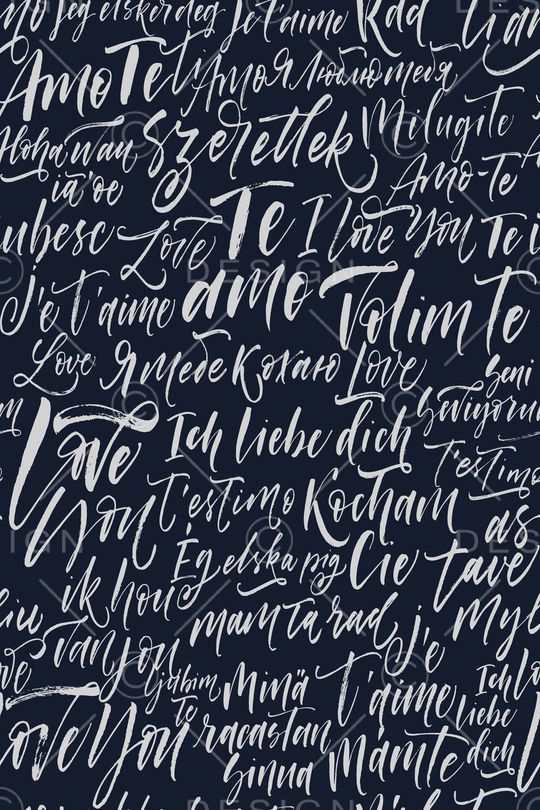 Jeg elsker deg Je t'aime Rad
Amo Te Amo Я люблю тебя
Aloha wau Szeretlek Milujite
ia 'oe Amo-Te
iubesc Love Te I love you Te
DESIGN
Je t'aime amo Volim te
Love Я тебе Кохаю Love Seni
Love Ich liebe dich Seviyorum
You t'estimo Kocham t'estimo
DESIGN
Ég elska þig Cie tave
ik hou mam ta rad
van you J'e
ljubim Minä t'aime Ich
Love You te racastan liebe
sinua Mamte dich